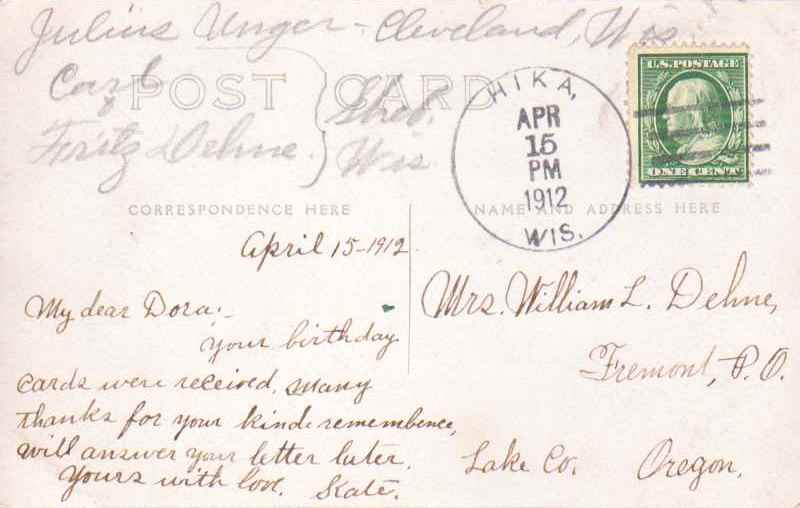 Julius Unger - Cleveland, Wis.
Carl
&
Fritz Dehne. } Sheb. Wis
POST CARD
HIKA,
APR
15
PM
1912
WIS.
U.S. POSTAGE
ONE CENT
CORRESPONDENCE HERE
NAME AND ADDRESS HERE
April 15-1912
My dear Dora:-
Your birthday
cards were received, many
thanks for your kinde remembence,
will answer your letter later.
Yours with love. Kate.
Mrs. William L. Dehne,
Fremont, P.O.
Lake Co. Oregon.